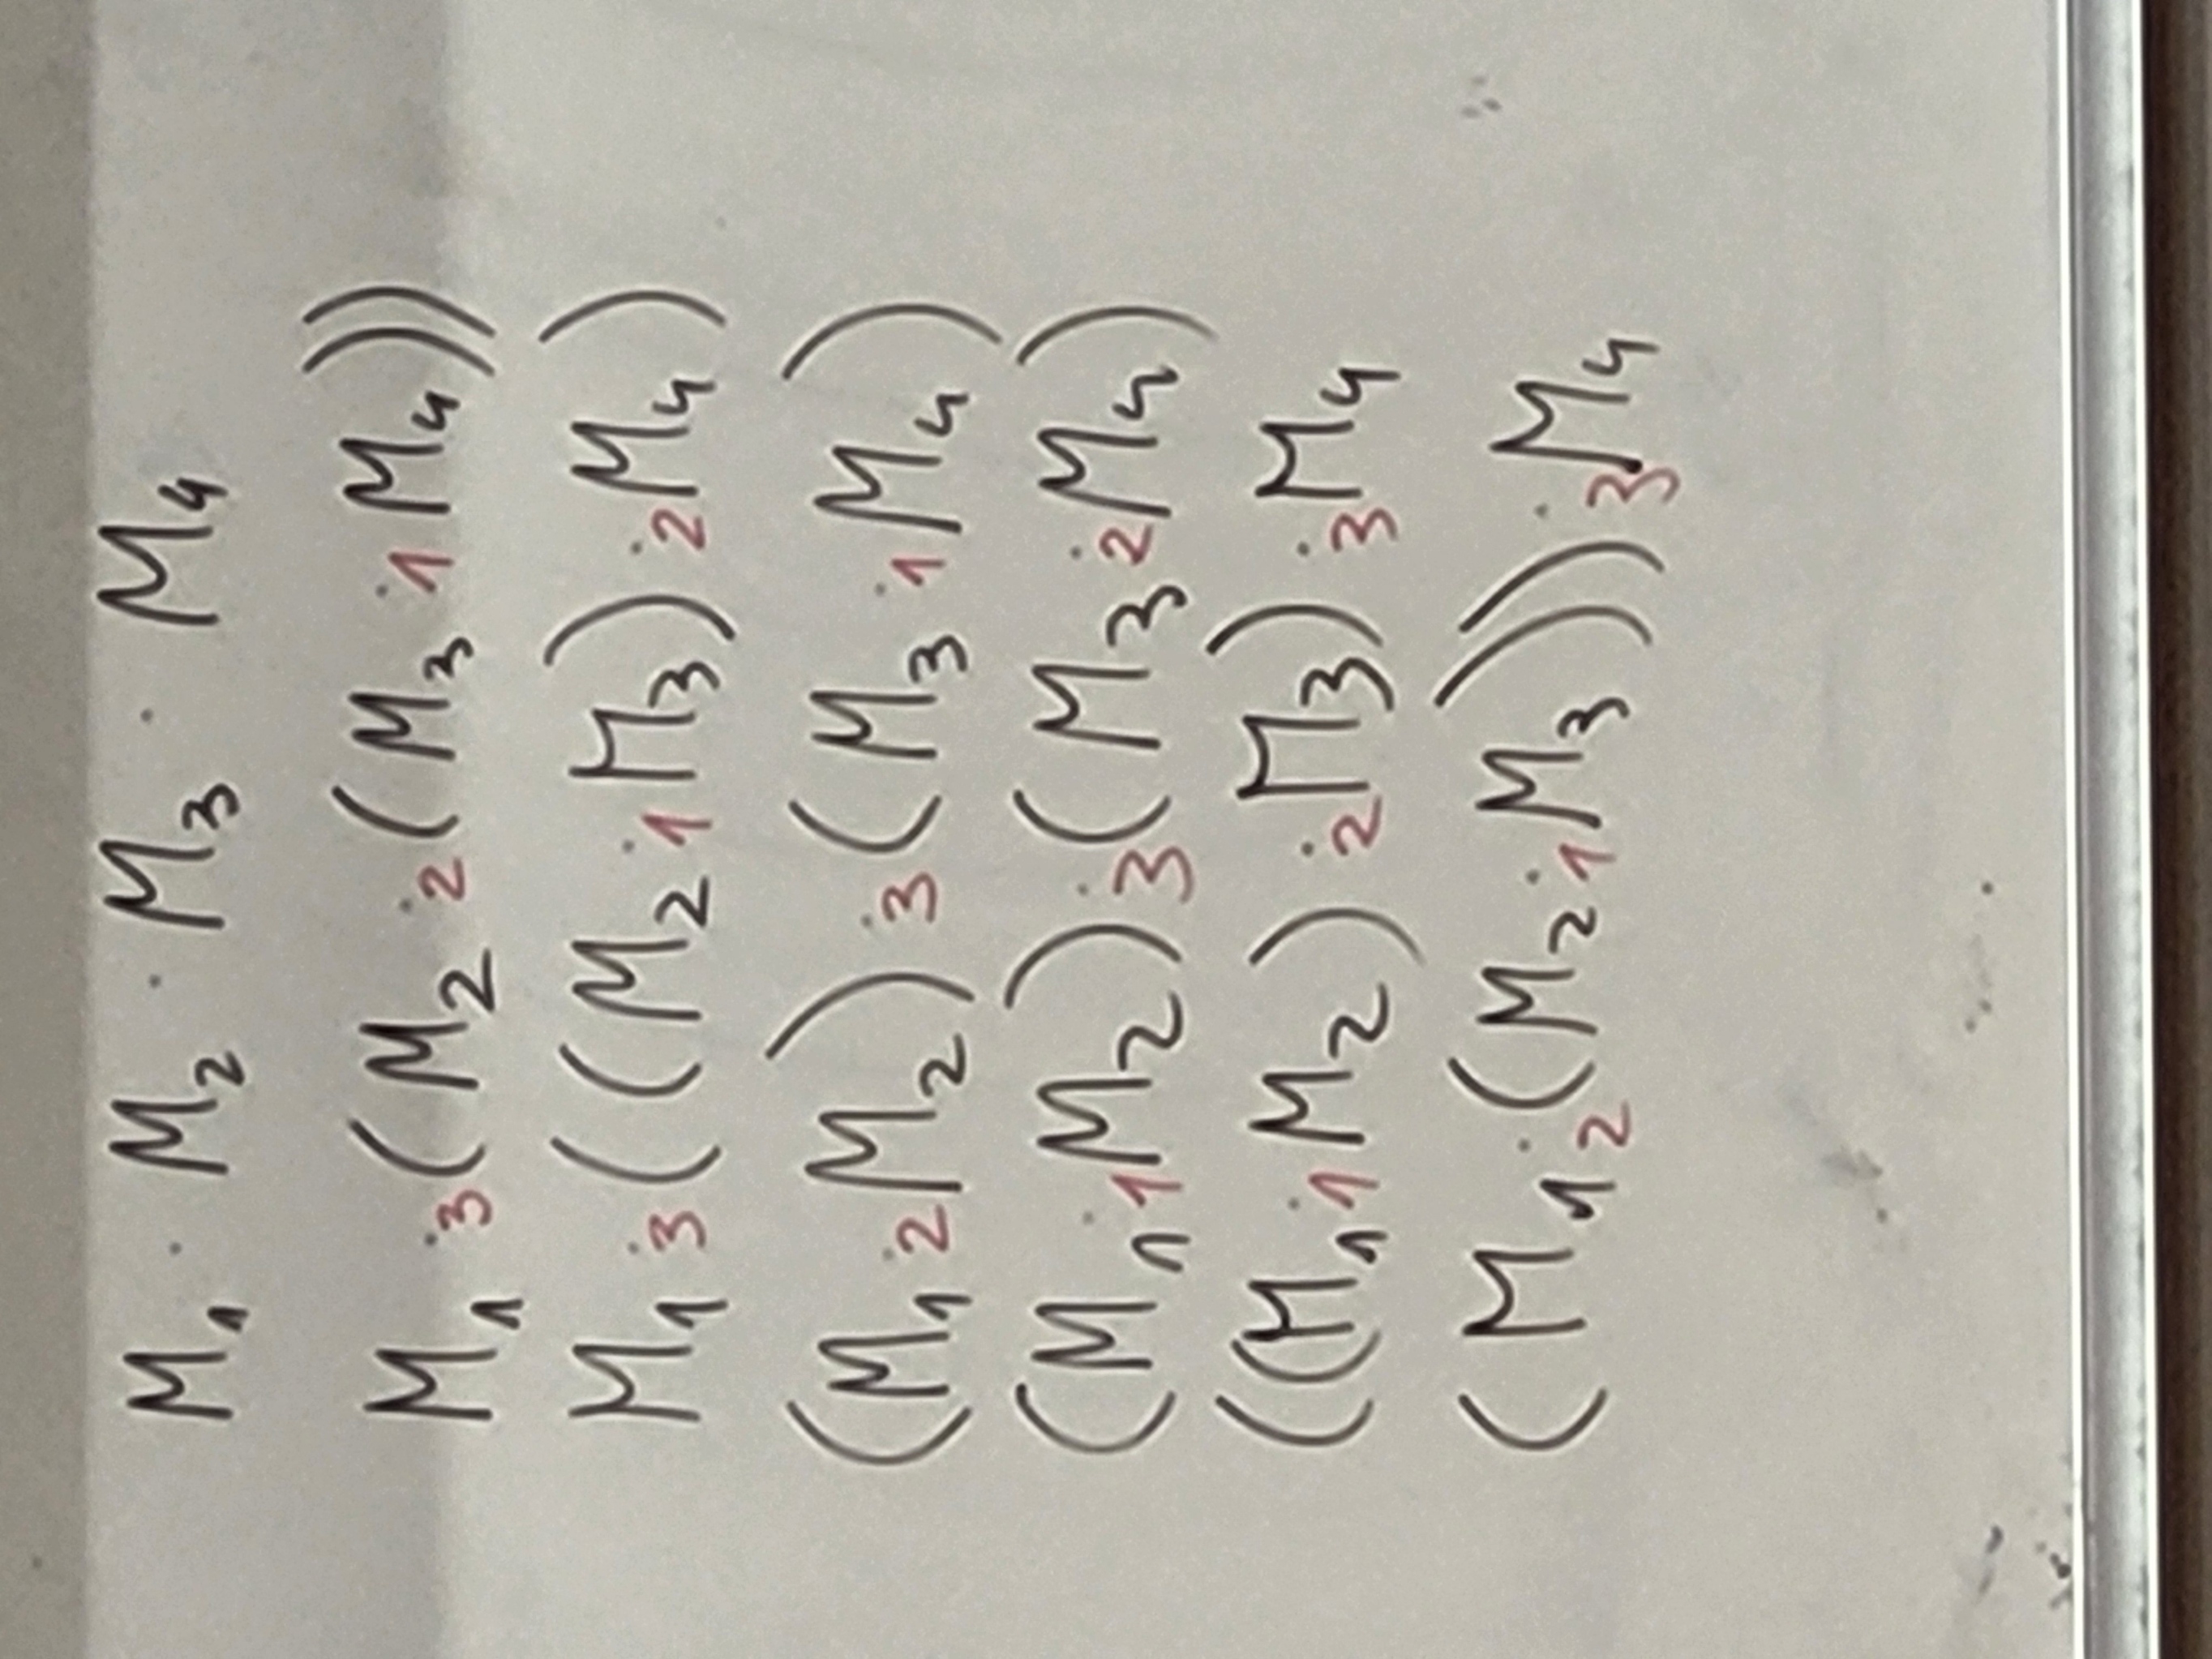 M₁ · M₂ · M₃ · M₄
M₁ ·₃ (M₂ ·₂ (M₃ ·₁ M₄))
M₁ ·₃ ((M₂ ·₁ M₃) ·₂ M₄)
(M₁ ·₂ M₂) ·₃ (M₃ ·₁ M₄)
(M₁ ·₁ M₂) ·₃ (M₃ ·₂ M₄)
((M₁ ·₁ M₂) ·₂ M₃) ·₃ M₄
(M₁ ·₂ (M₂ ·₁ M₃)) ·₃ M₄